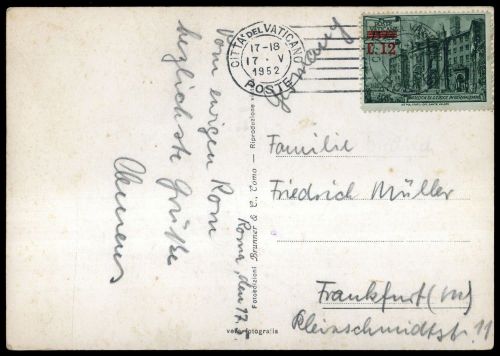 CITTA' DEL VATICANO
17-18
17 · V
1952
POSTE
POSTE
VATICANE
L.12
Germany
Vom ewigen Rom
herzlichste Grüße
Roma, den 17.
Familie
Friedrich Müller
Frankfurt (M)
Kleinschmidtstr. 11
Fotoedizioni Brunner & C. Como - Riproduzione
vera fotografia